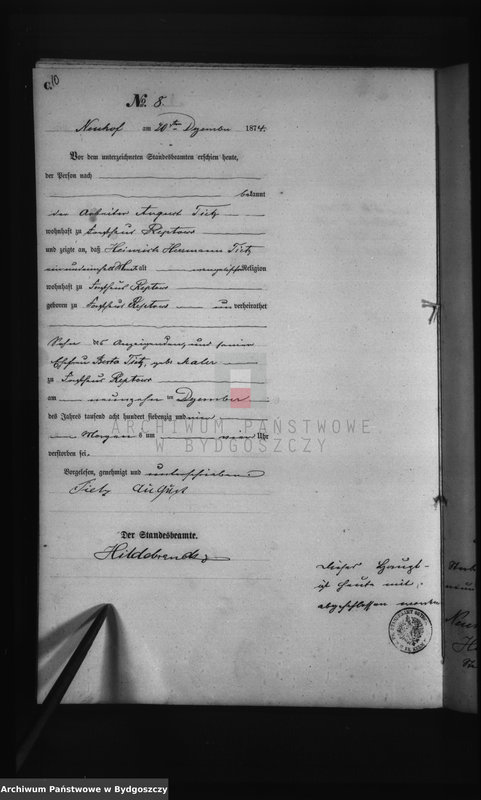 C.
10
No. 8.
Neuhof am 20ten Dezember 1874.
Vor dem unterzeichneten Standesbeamten erschien heute,
der Person nach
bekannt
der Arbeiter August Tietz
wohnhaft zu Forsthaus Reptowo
und zeigte an, daß Heinrich Hermann Tietz
alt Religion
wohnhaft zu Forsthaus Reptowo
geboren zu Forsthaus Reptowo unverheirathet
Sohn des Anzeigenden, und seiner
Ehefrau Berta Tietz, geb. Maler
zu Forsthaus Reptowo
am neunzehn ten Dezember
des Jahres tausend acht hundert siebenzig und vier
Morgens um vier Uhr
verstorben sei.
Vorgelesen, genehmigt und unterschrieben
Tietz August
Der Standesbeamte.
Hildebrandt
Dieser Haupt-
ist heute mit
abgeschlossen worden
ARCHIWUM PAŃSTWOWE
W BYDGOSZCZY
Archiwum Państwowe w Bydgoszczy